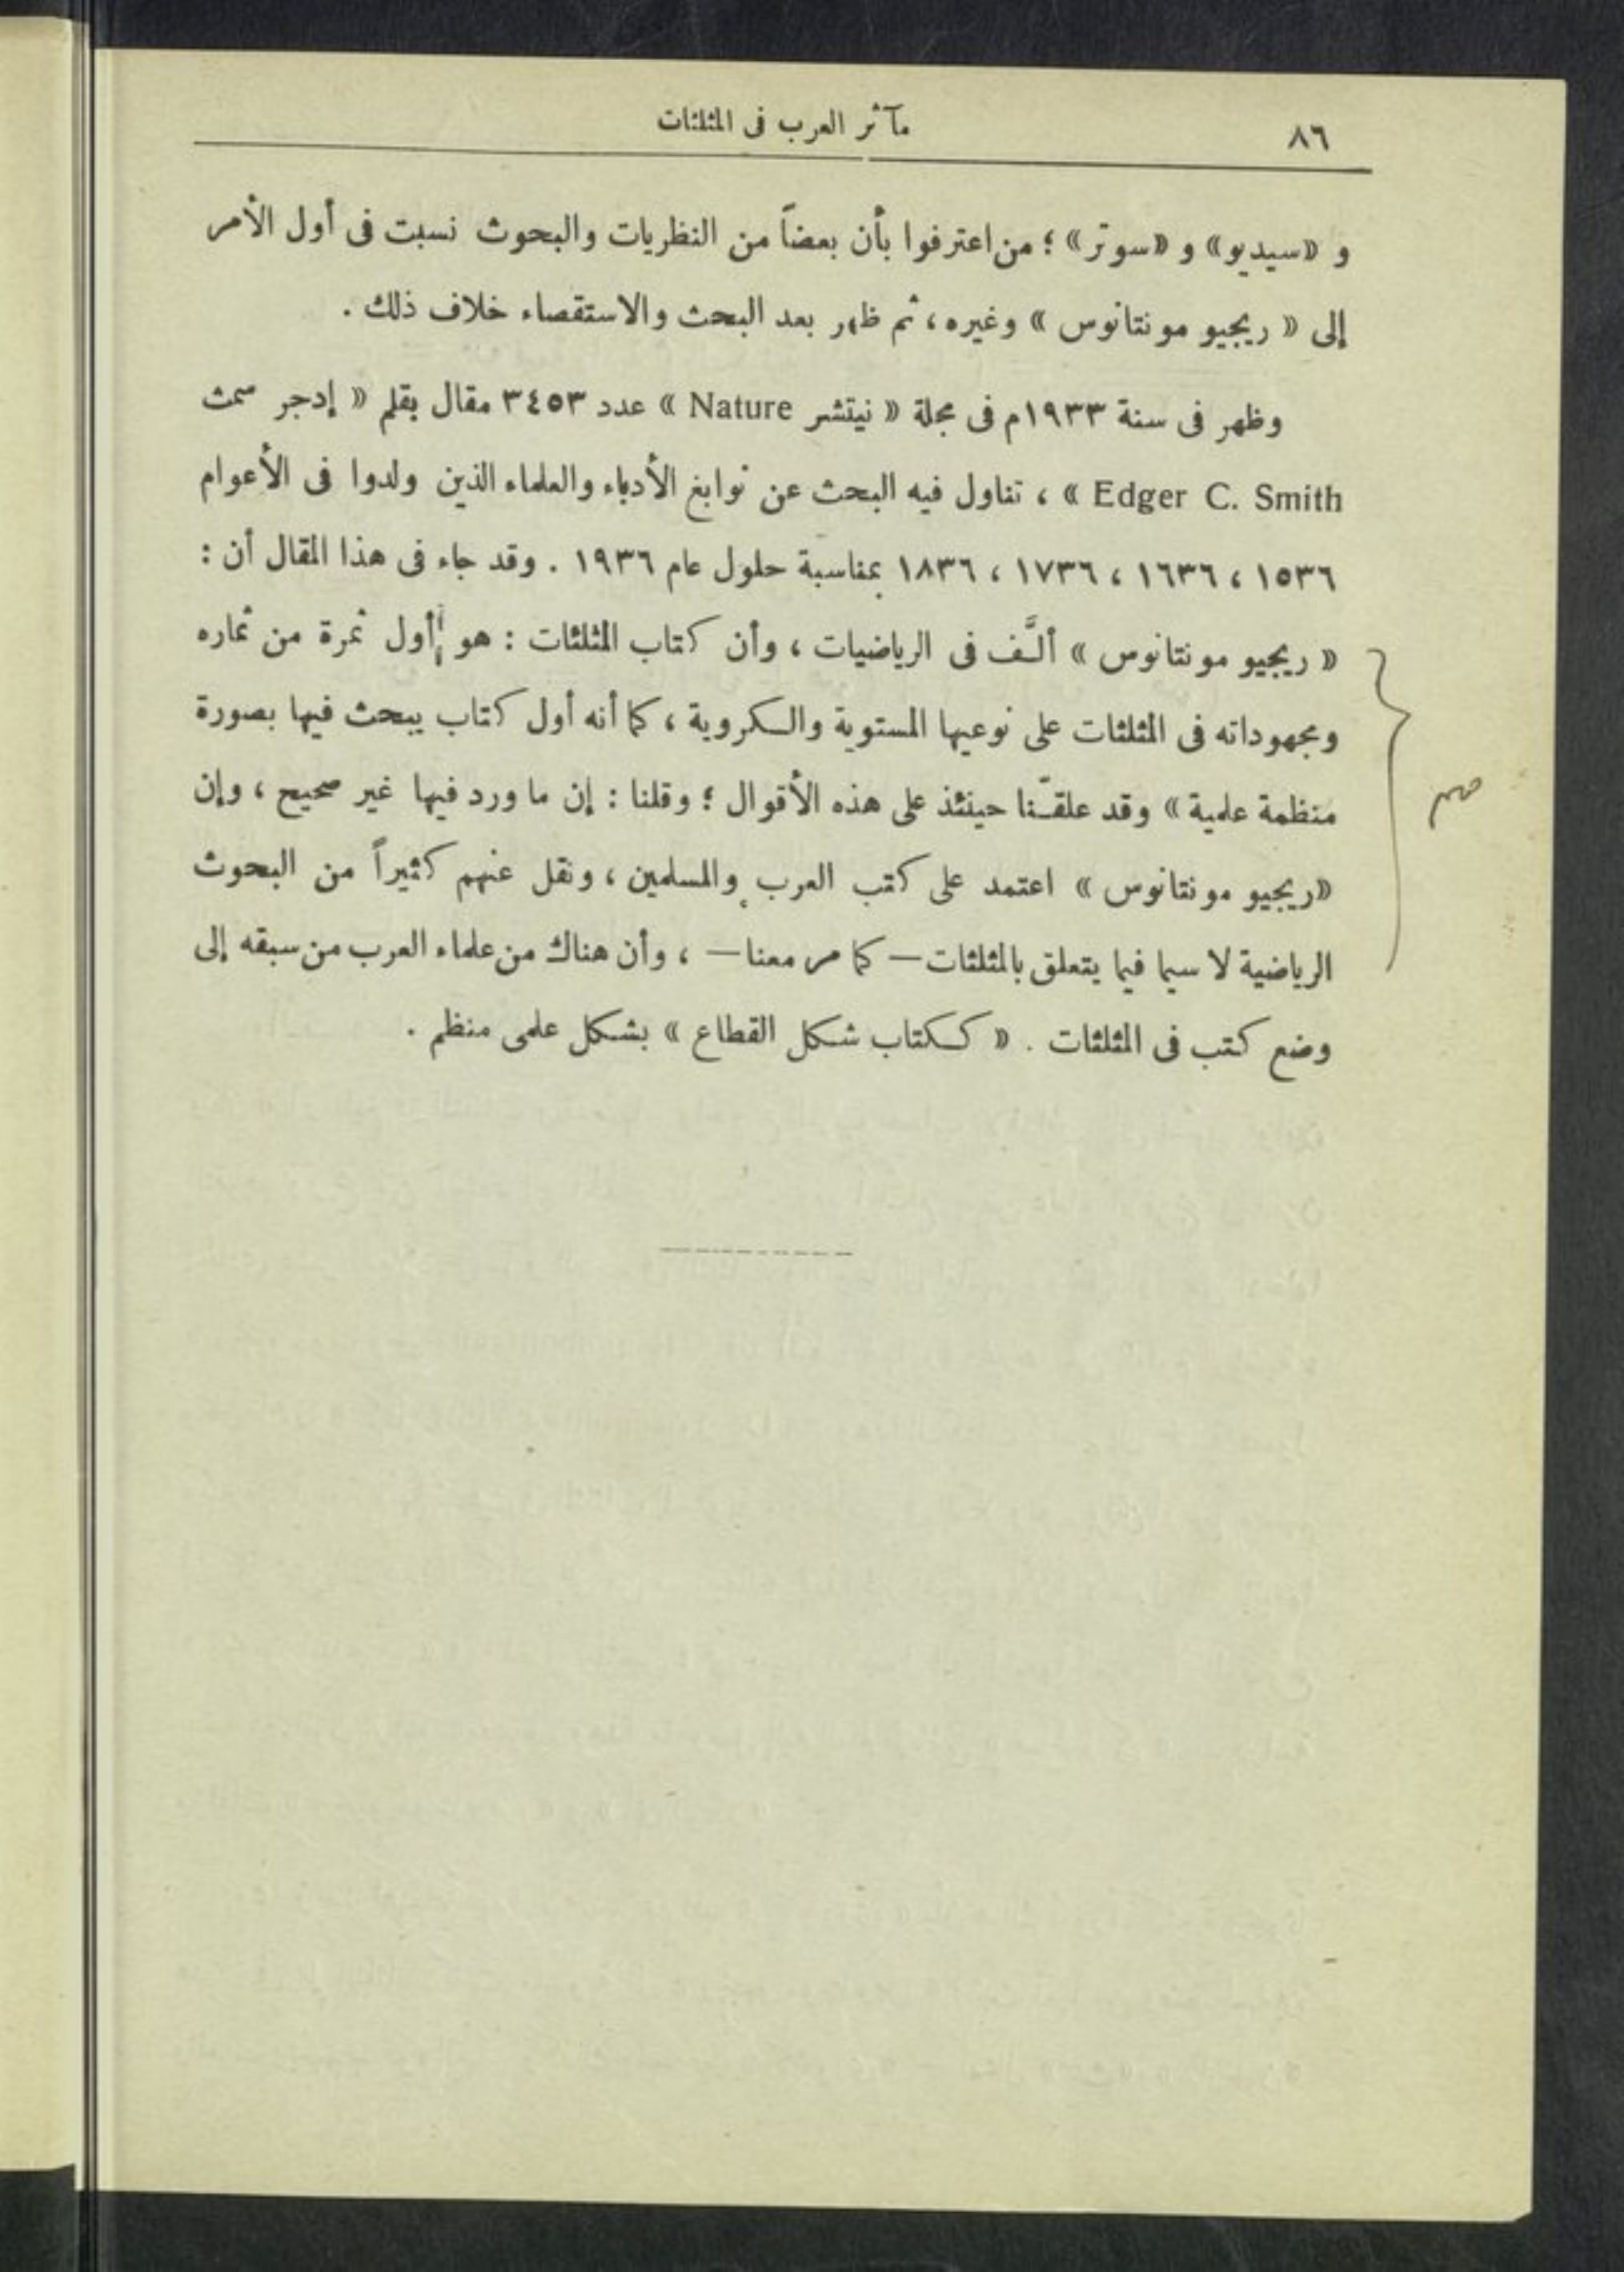 ٨٦
مآثر العرب فى المثلثات
و «سيديو» و «سوتر» ؛ من اعترفوا بأن بعضاً من النظريات والبحوث نسبت فى أول الأمر
إلى « ريجيو مونتانوس » وغيره ، ثم ظهر بعد البحث والاستقصاء خلاف ذلك .
وظهر فى سنة ١٩٣٣م فى مجلة « نيتشر Nature » عدد ٣٤٥٣ مقال بقلم « إدجر سمث
Edger C. Smith » ، تناول فيه البحث عن نوابغ الأدباء والعلماء الذين ولدوا فى الأعوام
١٥٣٦ ، ١٦٣٦ ، ١٧٣٦ ، ١٨٣٦ بمناسبة حلول عام ١٩٣٦ . وقد جاء فى هذا المقال أن :
« ريجيو مونتانوس » ألَّف فى الرياضيات ، وأن كتاب المثلثات : هو أول ثمرة من ثماره
ومجهوداته فى المثلثات على نوعيها المستوية والكروية ، كما أنه أول كتاب يبحث فيها بصورة
منظمة علمية » وقد علقّنا حينئذ على هذه الأقوال ؛ وقلنا : إن ما ورد فيها غير صحيح ، وإن
«ريجيو مونتانوس » اعتمد على كتب العرب والمسلمين ، ونقل عنهم كثيراً من البحوث
الرياضية لا سيما فيما يتعلق بالمثلثات — كما مر معنا — ، وأن هناك من علماء العرب من سبقه إلى
وضع كتب فى المثلثات . « ككتاب شكل القطاع » بشكل علمى منظم .
مهم